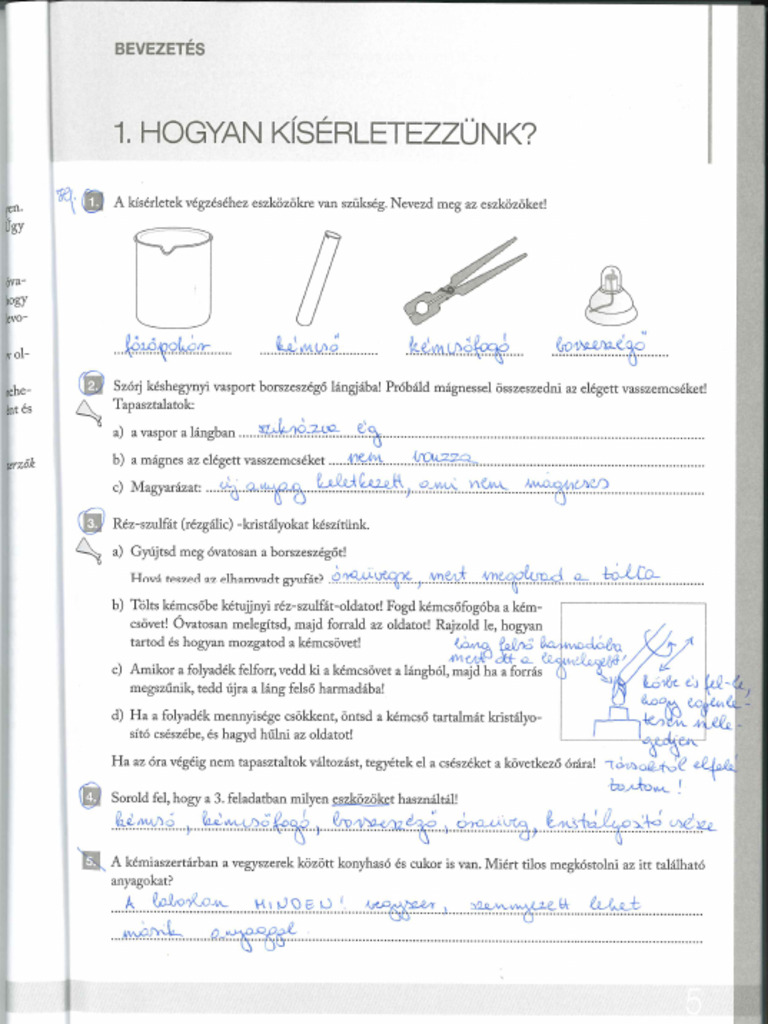 BEVEZETÉS
1. HOGYAN KÍSÉRLETEZZÜNK?
1. A kísérletek végzéséhez eszközökre van szükség. Nevezd meg az eszközöket!
főzőpohár kémcső kémcsőfogó borszeszégő
2. Szórj késhegynyi vasport borszeszégő lángjába! Próbáld mágnessel összeszedni az elégett vasszemcséket!
Tapasztalatok:
a) a vaspor a lángban szikrázva ég
b) a mágnes az elégett vasszemcséket nem vonzza
c) Magyarázat: új anyag keletkezett, ami nem mágneses
3. Réz-szulfát (rézgálic) -kristályokat készítünk.
a) Gyújtsd meg óvatosan a borszeszégőt!
Hová teszed az elhamvadt gyufát? óraüvegre, mert megolvad a tálca
b) Tölts kémcsőbe kétujjnyi réz-szulfát-oldatot! Fogd kémcsőfogóba a kém-
csövet! Óvatosan melegítsd, majd forrald az oldatot! Rajzold le, hogyan
tartod és hogyan mozgatod a kémcsövet!
láng felső harmadába
mert ott a legmelegebb
c) Amikor a folyadék felforr, vedd ki a kémcsövet a lángból, majd ha a forrás
megszűnik, tedd újra a láng felső harmadába!
körbe és fel-le,
hogy egyenle-
tesen mele-
gedjen
d) Ha a folyadék mennyisége csökkent, öntsd a kémcső tartalmát kristályo-
sító csészébe, és hagyd hűlni az oldatot!
Ha az óra végéig nem tapasztaltok változást, tegyétek el a csészéket a következő órára!
Társaktól elfelé
tartom!
4. Sorold fel, hogy a 3. feladatban milyen eszközöket használtál!
kémcső, kémcsőfogó, borszeszégő, óraüveg, kristályosító csésze
5. A kémiaszertárban a vegyszerek között konyhasó és cukor is van. Miért tilos megkóstolni az itt található
anyagokat?
A laborban MINDEN! vegyszer, szennyezett lehet
másik anyaggal.
5
en.
Úgy
óva-
hogy
evo-
v ol-
ehe-
ént és
erzők